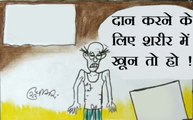 दान करने के
लिए शरीर में
खून तो हो !